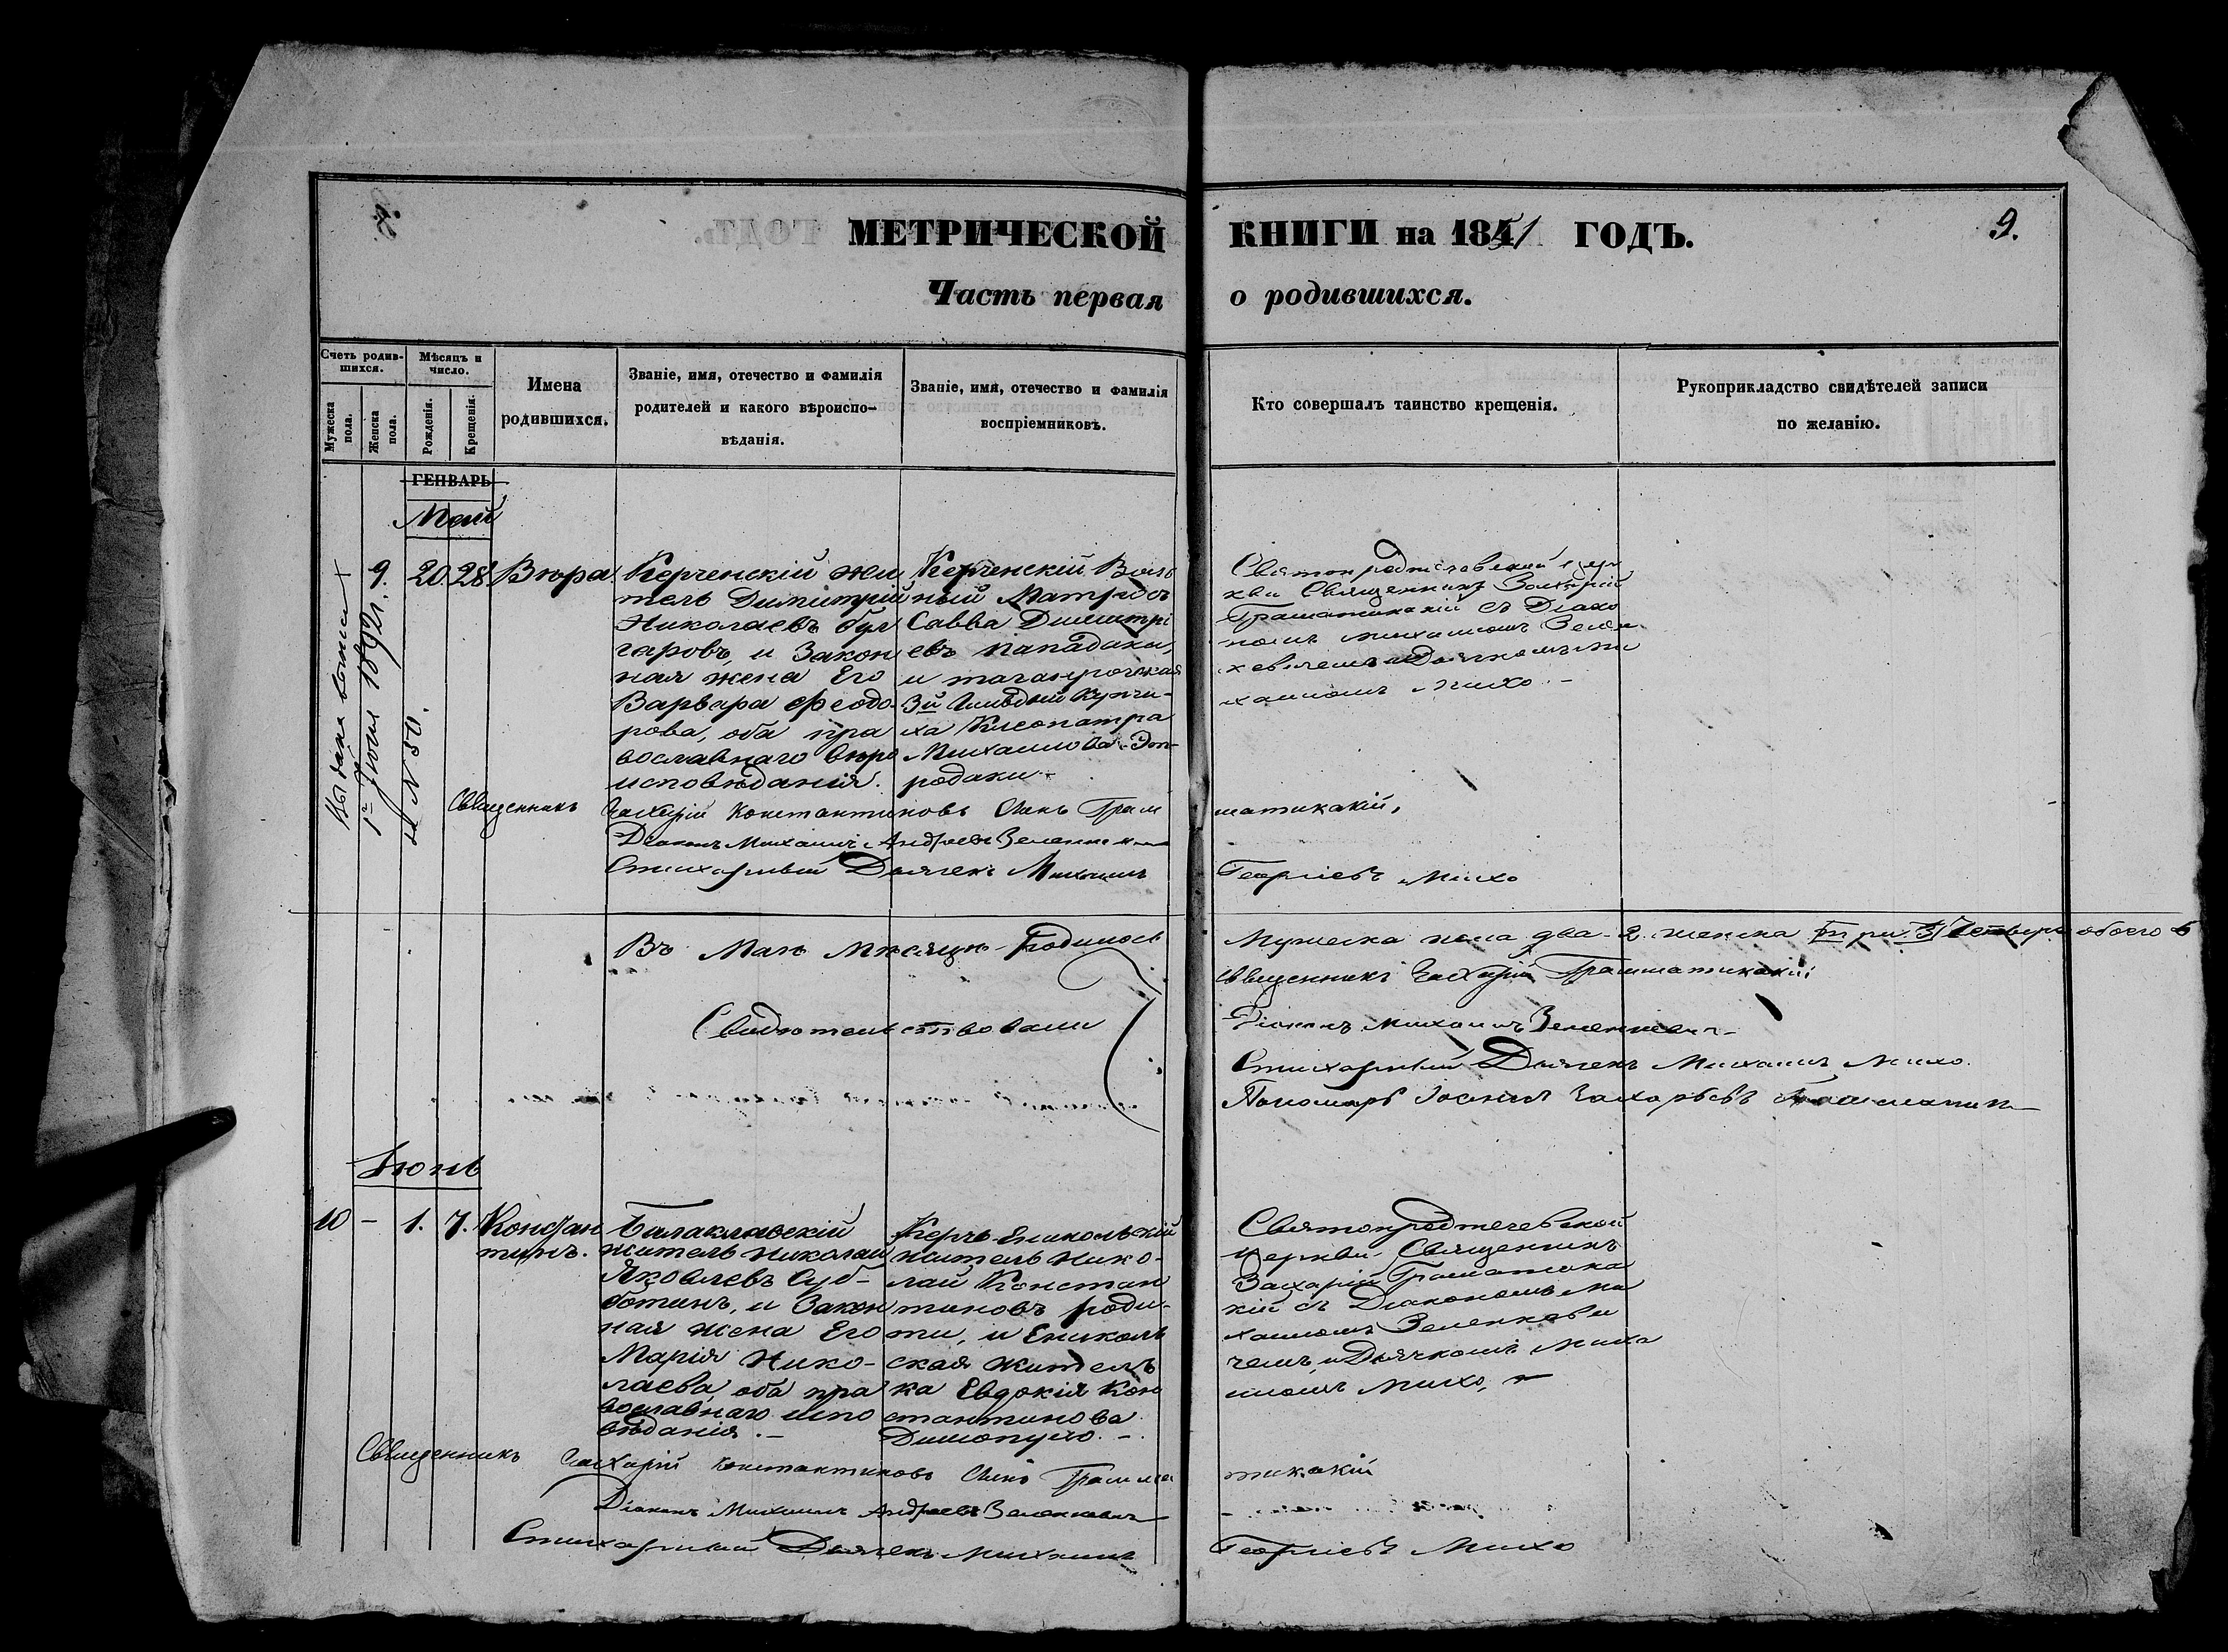 МЕТРИЧЕСКОЙ КНИГИ на 1851 ГОДЪ.
9.
Часть первая о родившихся.
Счетъ родив-
шихся.
Мужеска пола.
Женска пола.
Мѣсяцъ и
число.
Рожденія.
Крещенія.
Имена
родившихся.
Званіе, имя, отечество и фамилія
родителей и какого вѣроиспо-
вѣданія.
Званіе, имя, отечество и фамилія
воспріемниковъ.
Кто совершалъ таинство крещенія.
Рукоприкладство свидѣтелей записи
по желанію.
ГЕНВАРЬ
Май
9.
20.
28.
Вѣра
Керченскій жи
тель Димитрій
Николаевъ бул
гаровъ, и Закон
ная жена Его
Варвара Феодо-
рова, оба пра
вославнаго вѣро
исповѣданія.
Керченскій
Савва Димитрі
евъ пападаки,
и таганрогская
3й Гильдіи Купчи-
ха Клеопатра
Михаилова
родаки.
Святопредтечевской цер
кви Священникъ Захарій
Граматикакій съ Діако
номъ михаиломъ Зелен
кевичемъ и Дьячкомъ ми
хаиломъ Михо.-
1е Іюля 1892 г.
№ 80.
Священникъ Захарій Константиновъ Сынъ Грам матикакій,
Діаконъ Михаилъ Андреевъ Зеленкевичъ
Стихарный Дьячекъ Михаилъ Георгіевъ Михо
Въ Маѣ Мѣсяцѣ Родилось Мужеска пола два 2. женска три 3 Четверо обоего 6
Свидѣтельствовали
Священникъ Захарій Грамматикакій
Діаконъ Михаилъ Зеленкевичъ
Стихарный Дьячекъ Михаилъ Михо.
Пономарь Захарьевъ
Іюнь
10
-
1.
7.
Констан
тинъ.
Балаклавскій
житель Николай
Яковлевъ Суб-
ботинъ, и Закон
ная жена Его
Марія Нико-
лаева, оба пра
вославнаго испо
вѣданія.-
Керчь-Еникольскій
житель Нико-
лай Констан
тиновъ роди-
ти, и Ениколь
ская житель
ка Евдокія Кон
стантинова
Димопуло.-
Святопредтечевской
церкви Священникъ
Захарій Граматика
кій съ Діакономъ ми
хаиломъ Зеленкеви
чемъ, и Дьячкомъ Миха
иломъ Михо,
Священникъ Захарій Константиновъ Сынъ Грамма тикакій
Діаконъ Михаилъ Андреевъ Зеленкевичъ
Стихарный Дьячекъ Михаилъ Георгіевъ Михо